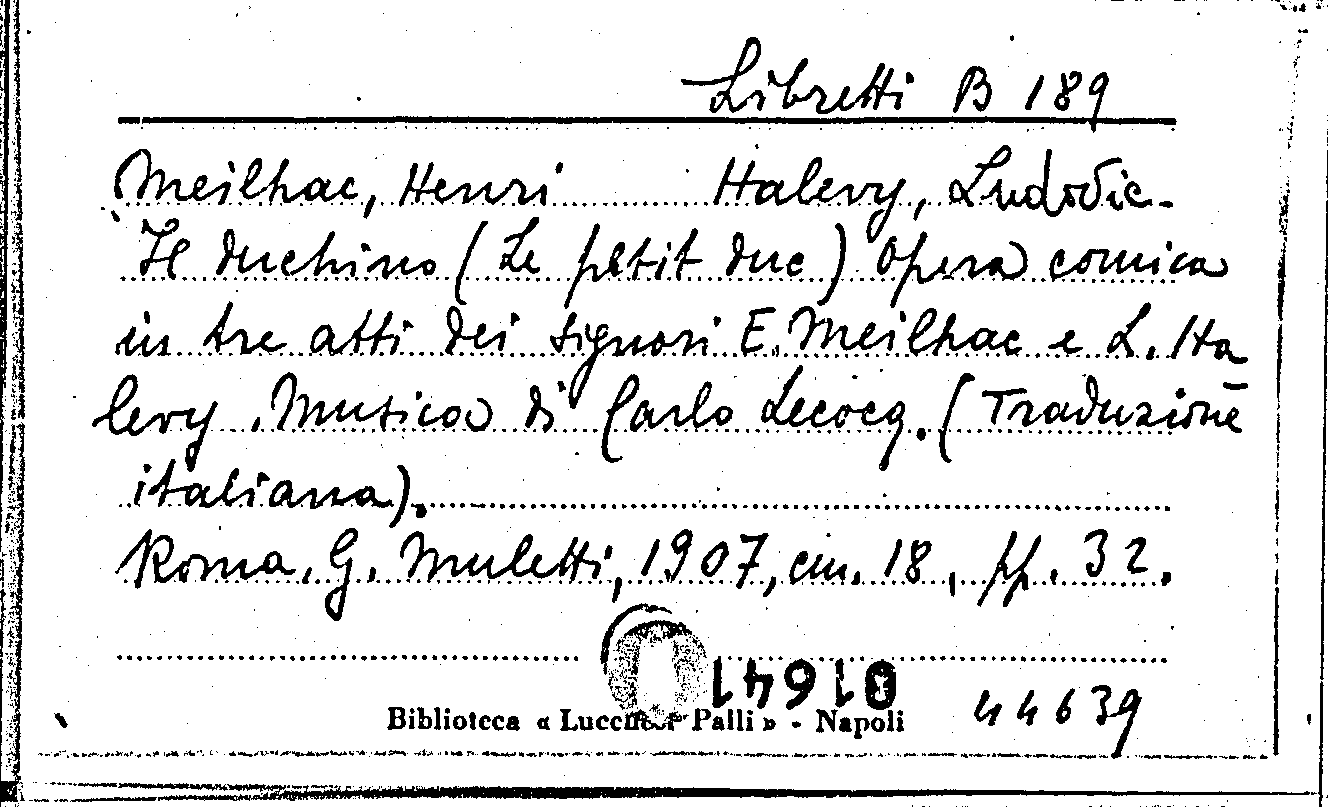 Libretti B 189
Meilhac, Henri Halevy, Ludovic-
Il duchino (Le petit duc) Opera comica
in tre atti dei signori E. Meilhac e L. Ha
levy. Musica di Carlo Lecocq. (Traduzione
italiana).
Roma, G. Muletti, 1907, cm. 18, pp. 32.
01641
Biblioteca « Lucchesi Palli » - Napoli
44639